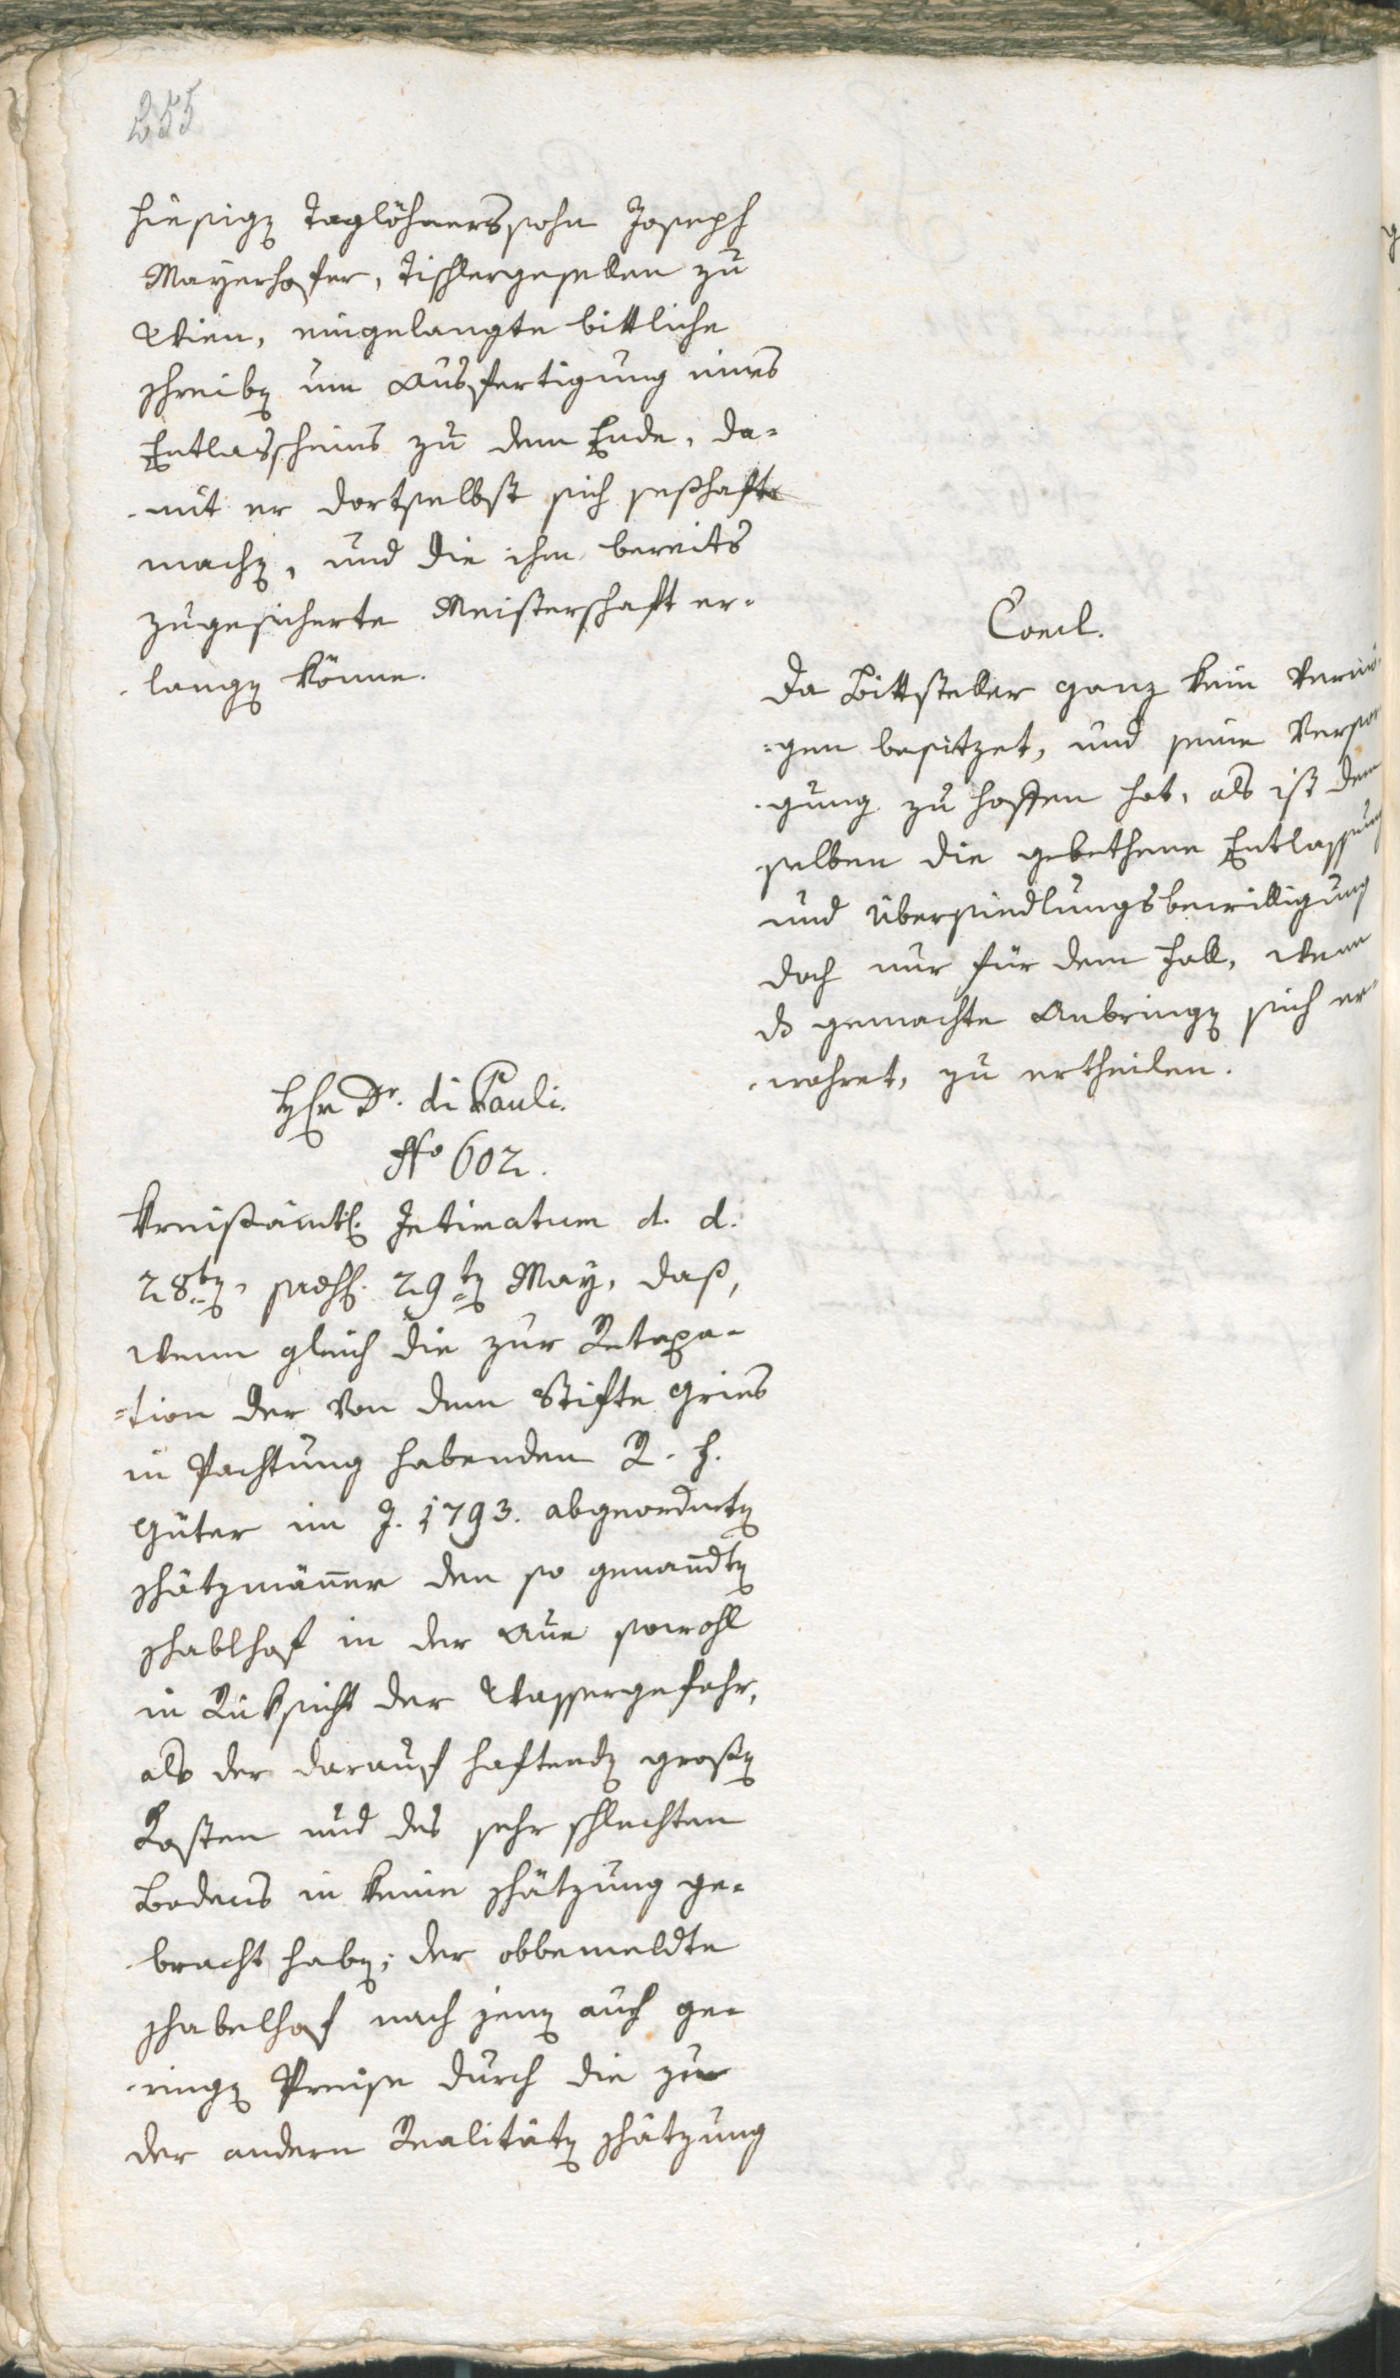 255
hiesigen Taglöhnerssohn Joseph
Mayerhofer, Tischlergesellen zu
Wien, eingelangte bittliche
Schreiben um Ausfertigung eines
Entlasscheins zu dem Ende, da-
mit er dortselbst sich seßhaft
machen, und die ihm bereits
zugesicherte Meisterschaft er-
langen könne.
Concl.
Da Bittsteller ganz kein Vermö-
gen besitzet, und seine Versor
gung zu hoffen hat, als ist dem
selben die gebethene Entlassung
und Übersiedlungsbewilligung
doch nur für dem Fall, wenn
das gemachte Anbringen sich er-
wahret, zu ertheilen.
Herr Dr. di Pauli.
No 602.
Kreisämtl. Intimatum d. d.
28ten, 29ten May, daß,
wenn gleich die zur Retaxa-
tion der von dem Stifte Gries
in Pachtung habenden R. F.
Güter im J. 1793. abgeordneten
Schätzmänner den so genandten
Schablhof in der Aue sowohl
in Rüksicht der Wassergefahr,
als der darauf haftenden großen
Kosten und des sehr schlechten
Bodens in keine Schätzung ge-
bracht haben; der obbemeldte
Schabelhof nach jenen auch ge-
ringen Preise durch die zur
der andern Realitäten Schätzung